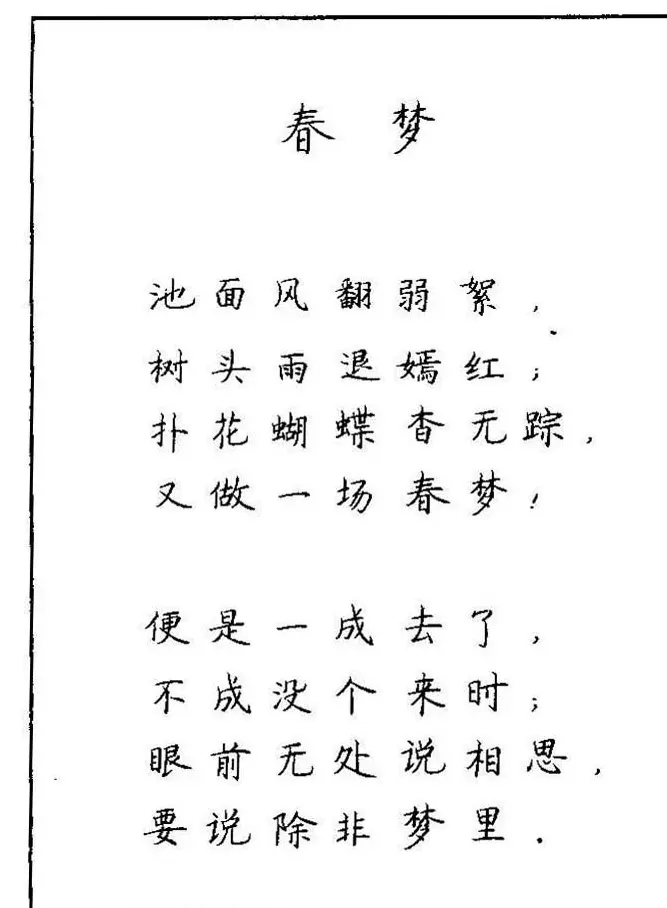 春 梦
池面风翻弱絮，
树头雨退嫣红；
扑花蝴蝶杳无踪，
又做一场春梦！
便是一成去了，
不成没个来时；
眼前无处说相思，
要说除非梦里．